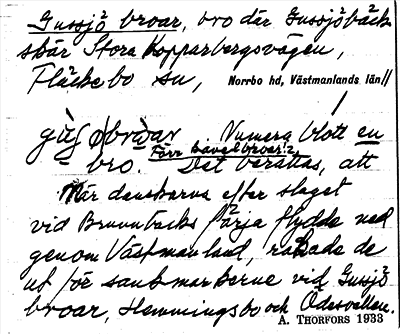 Gussjö broar, bro där Gussjöbäck
skär Stora Kopparbergsvägen,
Fläckebo sn, Norrbo hd, Västmanlands län
Numera blott en
bro. Förr kavelbroar. Det berättas, att
När danskarna efter slaget
vid Brunnbacks färja flydde ned
genom Västmanland, råkade de
ut för sankmarkerna vid Gussjö
broar, Hemmingsbo och Ödesvallen.
A. THORFORS 1933